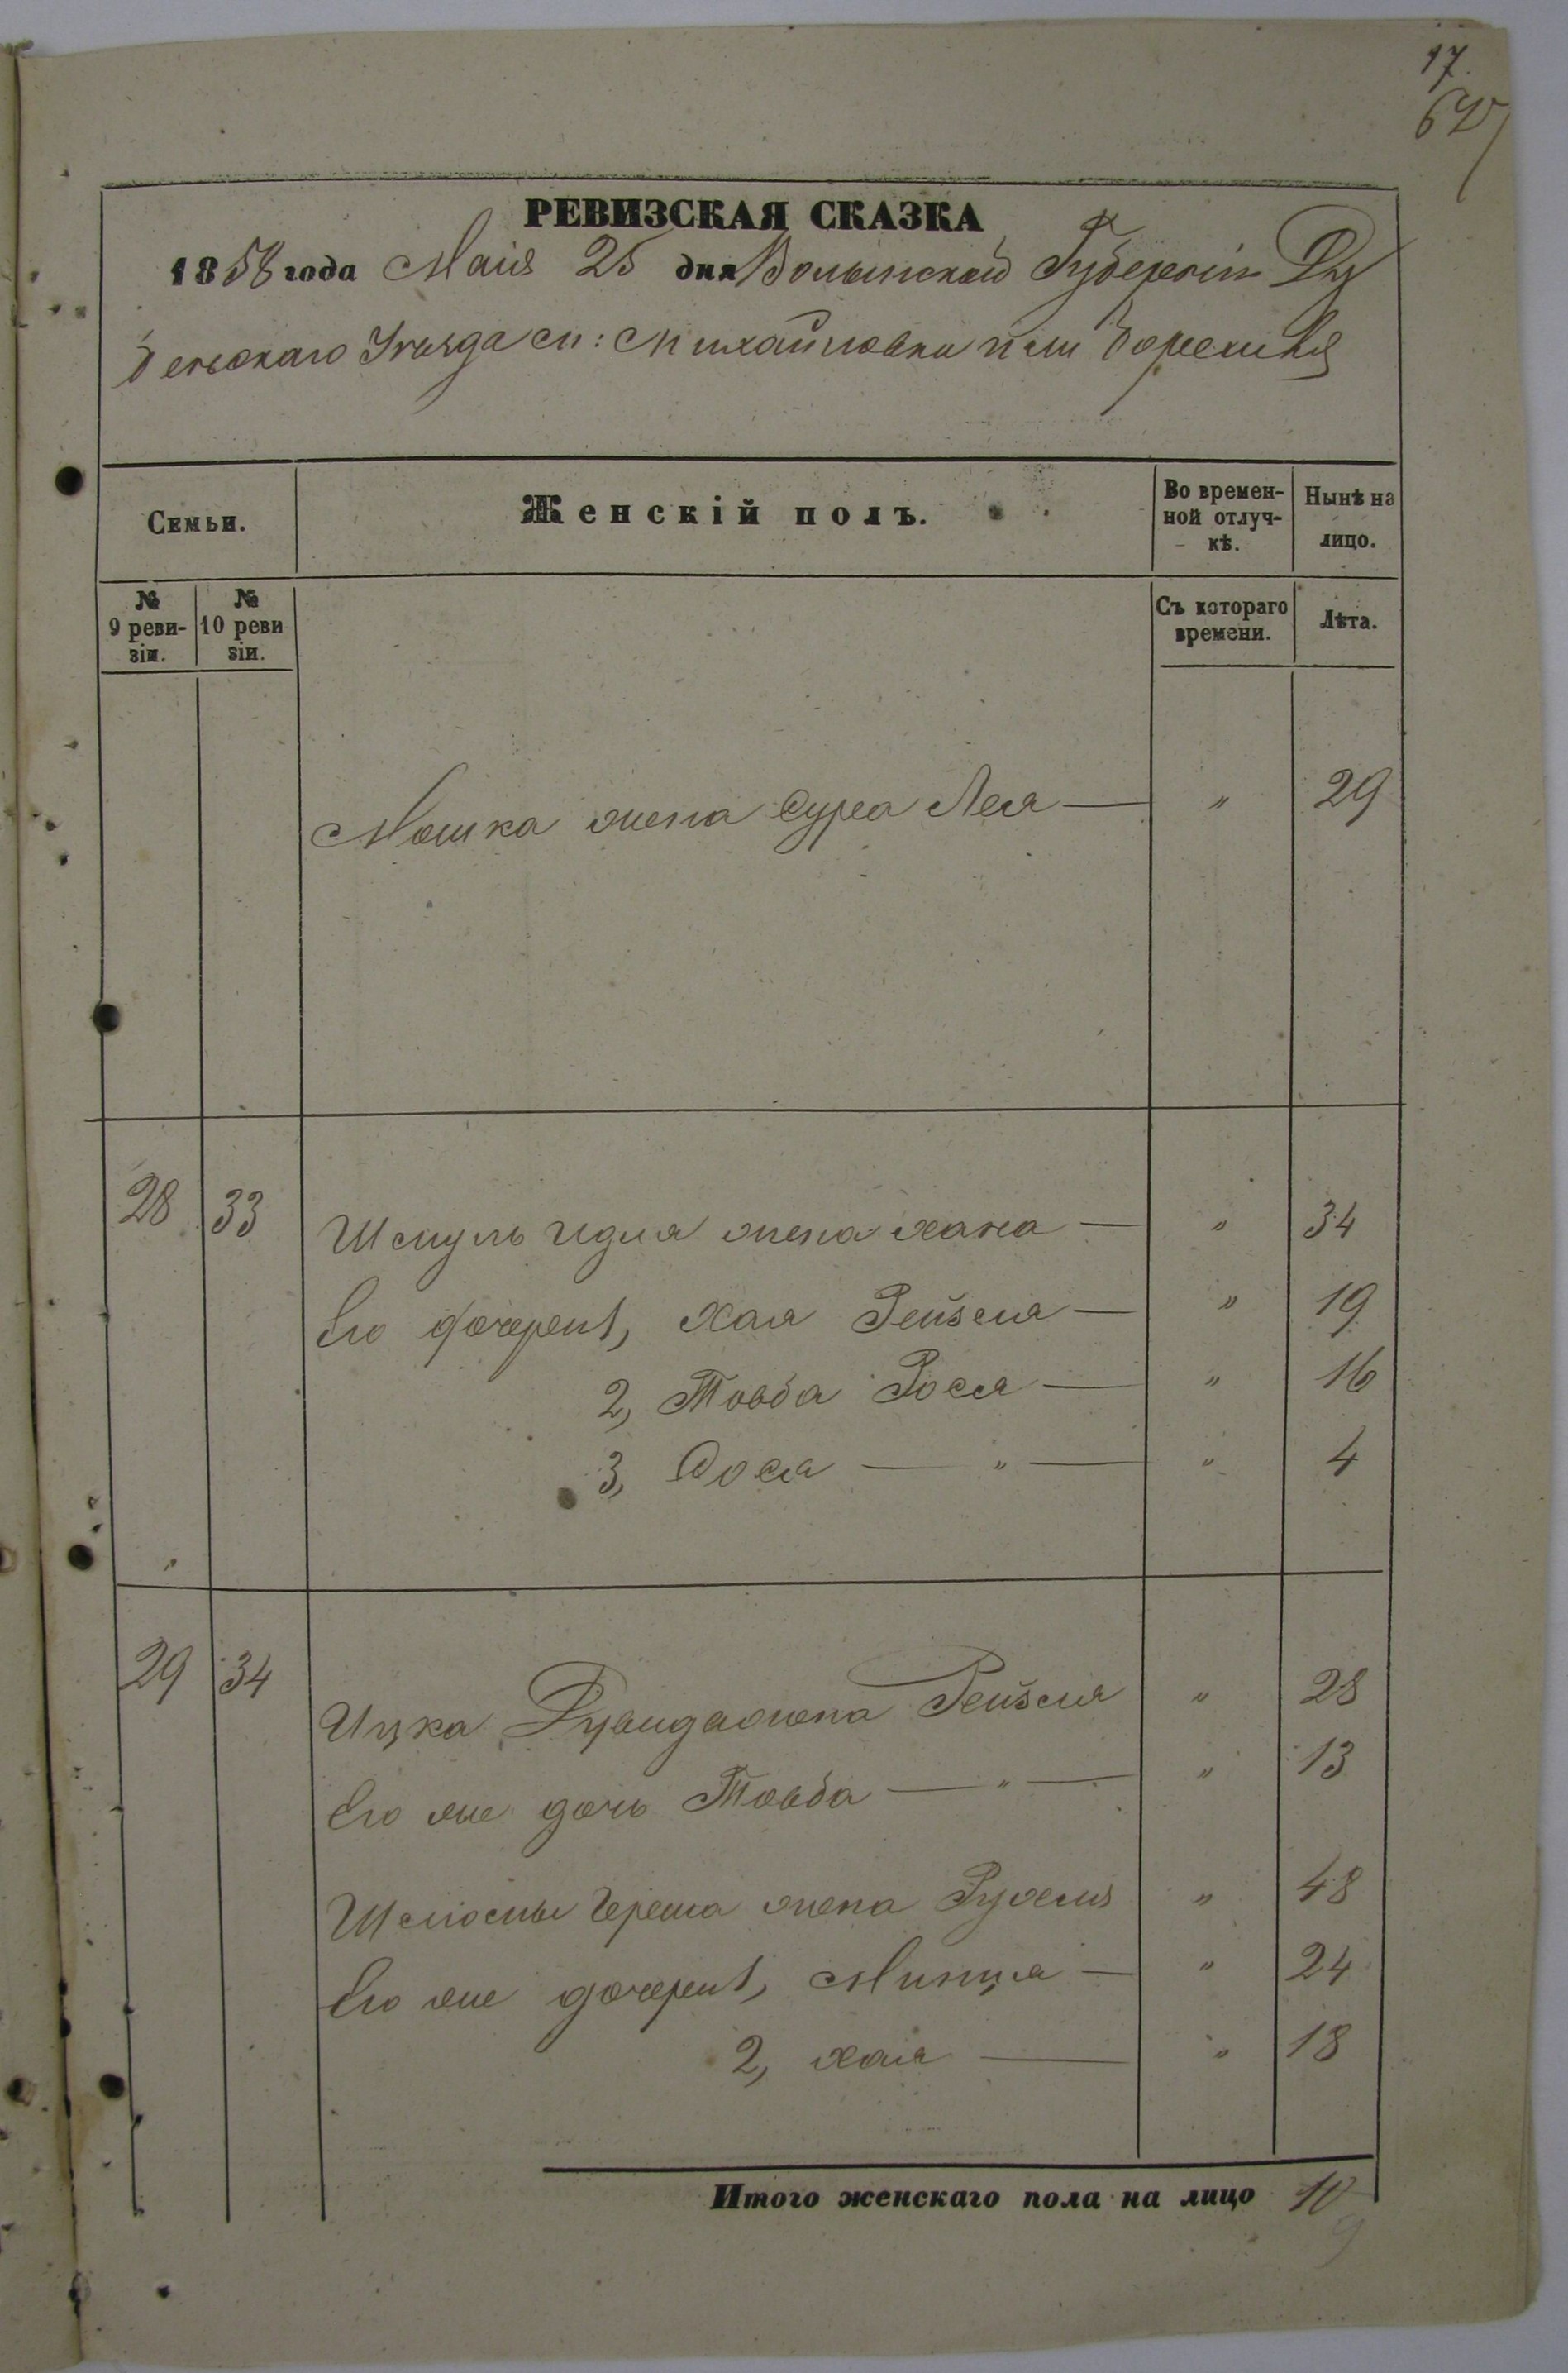 17.
62
РЕВИЗСКАЯ СКАЗКА
1858 года Маія 25 дня Волынской Губерніи Ду
бенскаго Уезда сл: Михайловки или
Семьи.
Женскій полъ.
Во времен-
ной отлуч-
кѣ.
Нынѣ на
лицо.
№
9 реви-
зіи.
№
10 реви
зіи.
Съ котораго
времени.
Лѣта.
Мошка жена Сура Лея — " 29
28 33 Шмуль Идля жена Хана — " 34
Его дочери 1, Хая Рейзля — " 19
2, Товба Рося — " 16
3, Сося — " — " 4
29 34 Ицка Рувида жена Рейзля " 28
Его же дочь Товба — " — " 13
Шлиомы Герша жена Рухля " 48
Его же дочери 1, Минця — " 24
2, Хая — " 18
Итого женскаго пола на лицо 10
9